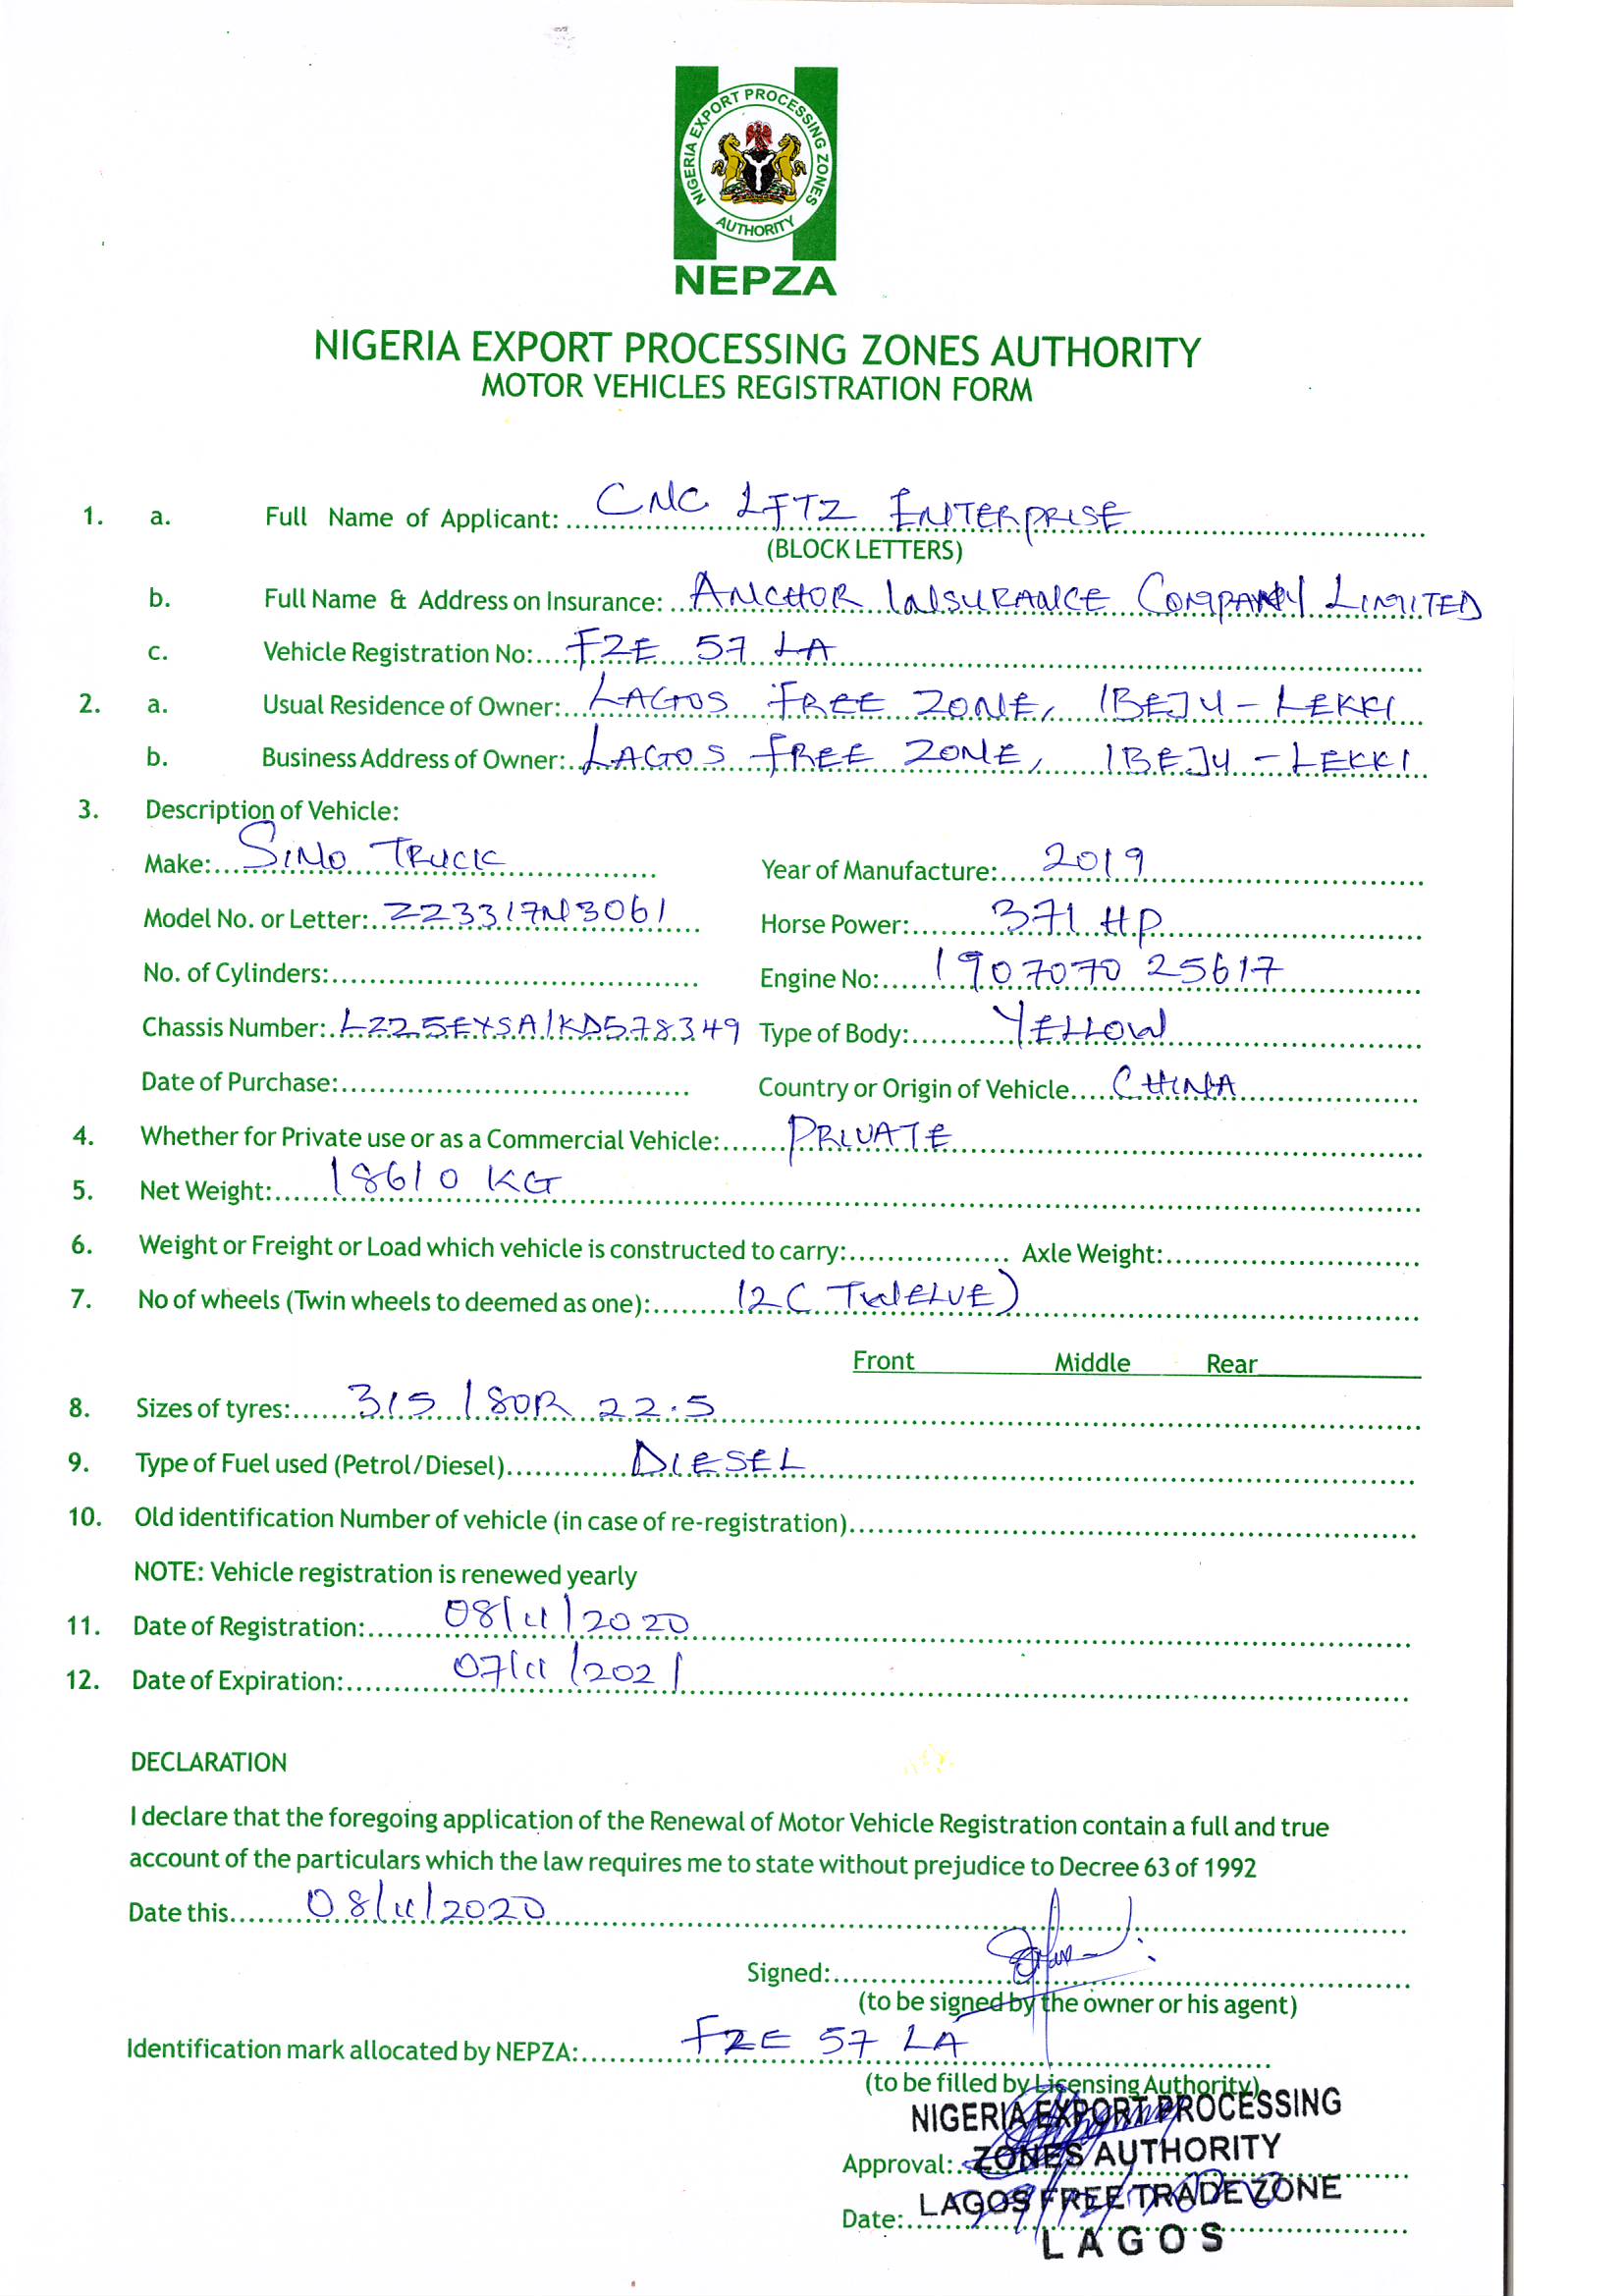 NIGERIA EXPORT PROCESSING ZONES
AUTHORITY
NEPZA
NIGERIA EXPORT PROCESSING ZONES AUTHORITY
MOTOR VEHICLES REGISTRATION FORM
1. a. Full Name of Applicant: CNC LFTZ ENTERPRISE
(BLOCK LETTERS)
b. Full Name & Address on Insurance: ANCHOR INSURANCE COMPANY LIMITED
c. Vehicle Registration No: FZE 57 LA
2. a. Usual Residence of Owner: LAGOS FREE ZONE, IBEJU - LEKKI
b. Business Address of Owner: LAGOS FREE ZONE, IBEJU - LEKKI
3. Description of Vehicle:
Make: SINO TRUCK Year of Manufacture: 2019
Model No. or Letter: ZZ3317N3061 Horse Power: 371 HP
No. of Cylinders: Engine No: 190707025617
Chassis Number: LZZ5EXSA1KD578349 Type of Body: YELLOW
Date of Purchase: Country or Origin of Vehicle CHINA
4. Whether for Private use or as a Commercial Vehicle: PRIVATE
5. Net Weight: 18610 KG
6. Weight or Freight or Load which vehicle is constructed to carry: Axle Weight:
7. No of wheels (Twin wheels to deemed as one): 12 (TWELVE)
Front Middle Rear
8. Sizes of tyres: 315/80R 22.5
9. Type of Fuel used (Petrol/Diesel) DIESEL
10. Old identification Number of vehicle (in case of re-registration)
NOTE: Vehicle registration is renewed yearly
11. Date of Registration: 08/11/2020
12. Date of Expiration: 07/11/2021
DECLARATION
I declare that the foregoing application of the Renewal of Motor Vehicle Registration contain a full and true
account of the particulars which the law requires me to state without prejudice to Decree 63 of 1992
Date this 08/11/2020
Signed:
(to be signed by the owner or his agent)
Identification mark allocated by NEPZA: FZE 57 LA
(to be filled by Licensing Authority)
NIGERIA EXPORT PROCESSING
Approval: ZONES AUTHORITY
LAGOS FREE TRADE ZONE
Date:
LAGOS